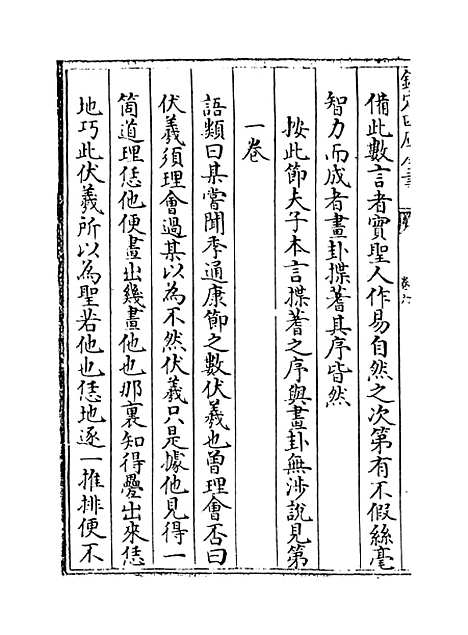 欽定四庫全書
卷六
備此數言者實聖人作易自然之次第有不假絲毫
智力而成者畫卦揲蓍其序皆然
按此節夫子本言揲蓍之序與畫卦無涉說見第
一卷
語類曰某嘗聞季通康節之數伏羲也曾理會否曰
伏羲須理會過某以為不然伏羲只是據他見得一
箇道理恁他便畫出幾畫他也那裏知得疊出來恁
地巧此伏羲所以為聖若他也恁地逐一推排便不